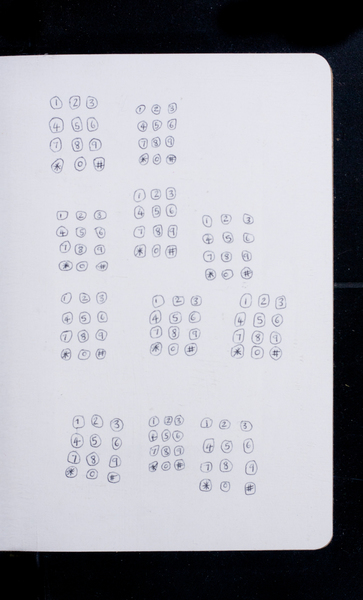 1 2 3
4 5 6
7 8 9
* 0 #
1 2 3
4 5 6
7 8 9
* 0 #
1 2 3
4 5 6
7 8 9
* 0 #
1 2 3
4 5 6
7 8 9
* 0 #
1 2 3
4 5 6
7 8 9
* 0 #
1 2 3
4 5 6
7 8 9
* 0 #
1 2 3
4 5 6
7 8 9
* 0 #
1 2 3
4 5 6
7 8 9
* 0 #
1 2 3
4 5 6
7 8 9
* 0 #
1 2 3
4 5 6
7 8 9
* 0 #
1 2 3
4 5 6
7 8 9
* 0 #